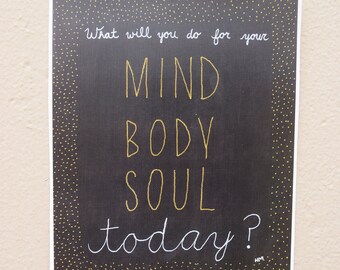 What will you do for your
MIND
BODY
SOUL
today?